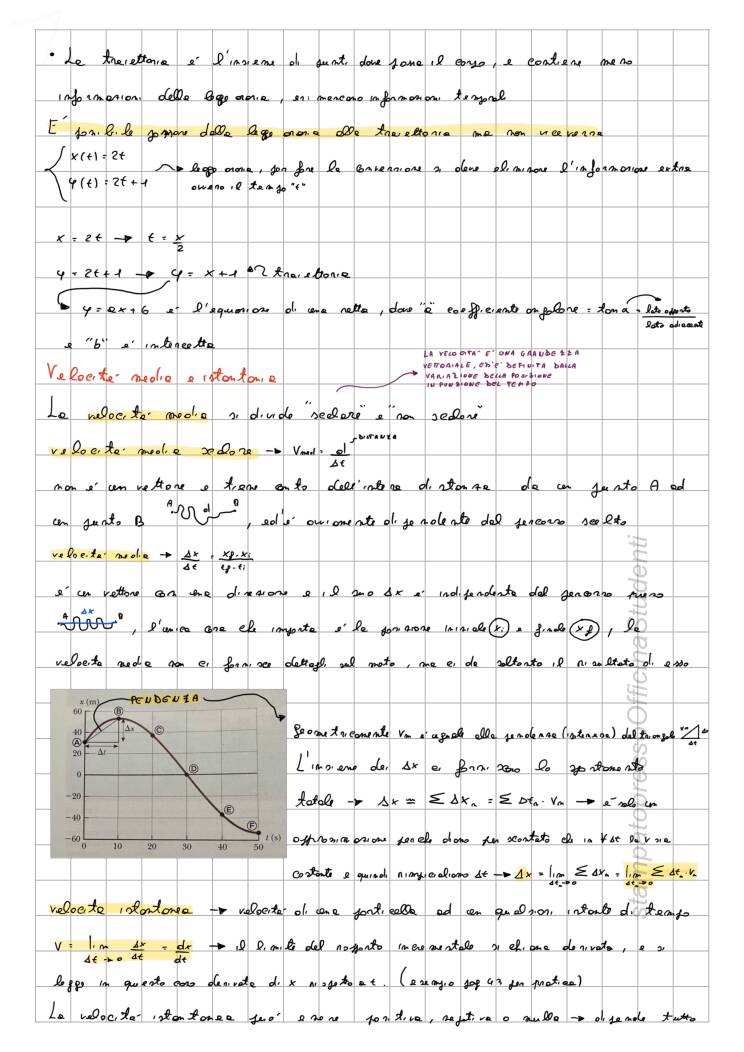 • La traiettoria é l'insieme di punti dove passa il corpo, e contiene meno
informazioni della legge oraria, essi mancano informazioni temporali
E' possibile passare dalla legge oraria alla traiettoria ma non viceversa
x(t) = 2t
y(t) = 2t + 1
legge oraria, per fare la conversione si deve eliminare l'informazione extra
ovvero il tempo "t"
x = 2t → t = x/2
y = 2t + 1 → y = x + 1 traiettoria
y = ax + b é l'equazione di una retta, dove "a" coefficiente angolare = tan α = lato opposto/lato adiacente
e "b" é intercetta
LA VELOCITA' E' UNA GRANDEZZA
VETTORIALE, ED E' DEFINITA DALLA
VARIAZIONE DELLA POSIZIONE
IN FUNZIONE DEL TEMPO
Velocita' media e istantanea
La velocita' media si divide "scalare" e "non scalare"
velocita' media scalare → Vmed = d/Δt DISTANZA
non é un vettore e tiene conto dell'intera distanza da un punto A ad
un punto B A d B, ed é ovviamente dipendente dal percorso scelto
velocita' media → Δx/Δt = xf - xi/tf - ti
é un vettore con una direzione e il suo Δx é indipendente dal percorso preso
A Δx B, l'unica cosa che importa é la posizione iniziale (xi) e finale (xf), la
velocita media non ci fornisce dettagli sul moto, ma ci da soltanto il risultato di esso
PENDENZA
x (m)
60
40
20
0
−20
−40
−60
A
B
C
D
E
F
Δx
Δt
0 10 20 30 40 50
t (s)
Geometricamente Vm é uguale alla pendenza (ipotenusa) del triangolo Δt
L'insieme dei Δx ci forniscono lo spostamento
totale → Δx ≃ ∑ Δxn = ∑ Δtn · Vm → é solo un
approssimazione perche diamo per scontato che in ∀ Δt la V sia
costante e quindi rimpiccioliamo Δt → Δx = lim Δtn→0 ∑ Δxn = lim Δtn→0 ∑ Δtn · Vn
velocita istantanea → velocita' di una particella ad un qualsiasi istante di tempo
V = lim Δt→0 Δx/Δt = dx/dt → il limite del rapporto incrementale si chiama derivata, e si
legge in questo caso derivata di x rispetto a t. (esempio pag 43 per pratica)
La velocita' istantanea puo' essere positiva, negativa o nulla → dipende tutto
stampatopress Officina Studenti